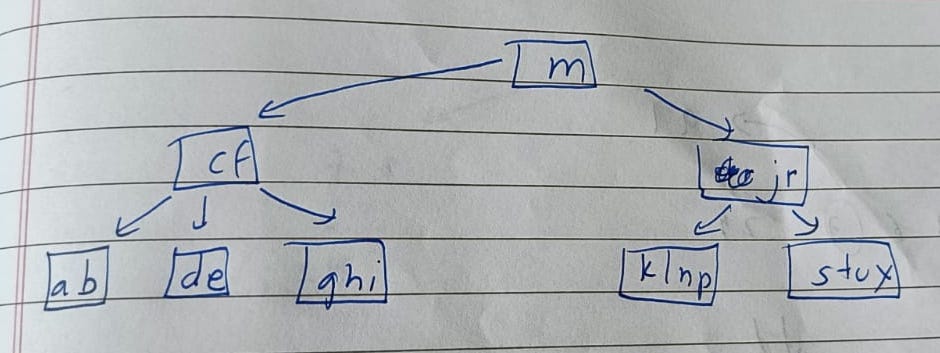 m
cf
jr
ab de ghi klnp stux